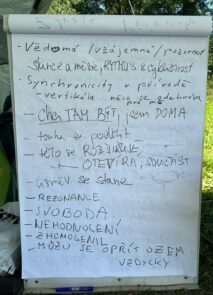 · Vědomá /vzájemná/pozornost
slunce a měsíc, RYTMUS & cykličnost
· Synchronicity v přírodě
vertikála... něco se odehrává
pro mě
- Chci TAM BÝT, jsem DOMA
- touha se podělit
- tělo se ROZŠIŘUJE
OTEVÍRÁ, SOUČÁST
- úsměv se stane
- REZONANCE
- SVOBODA
- NEHODNOCENÍ
- ZHOMOGENIL
- MŮŽU SE OPŘÍT O ZEM
VŽDYCKY